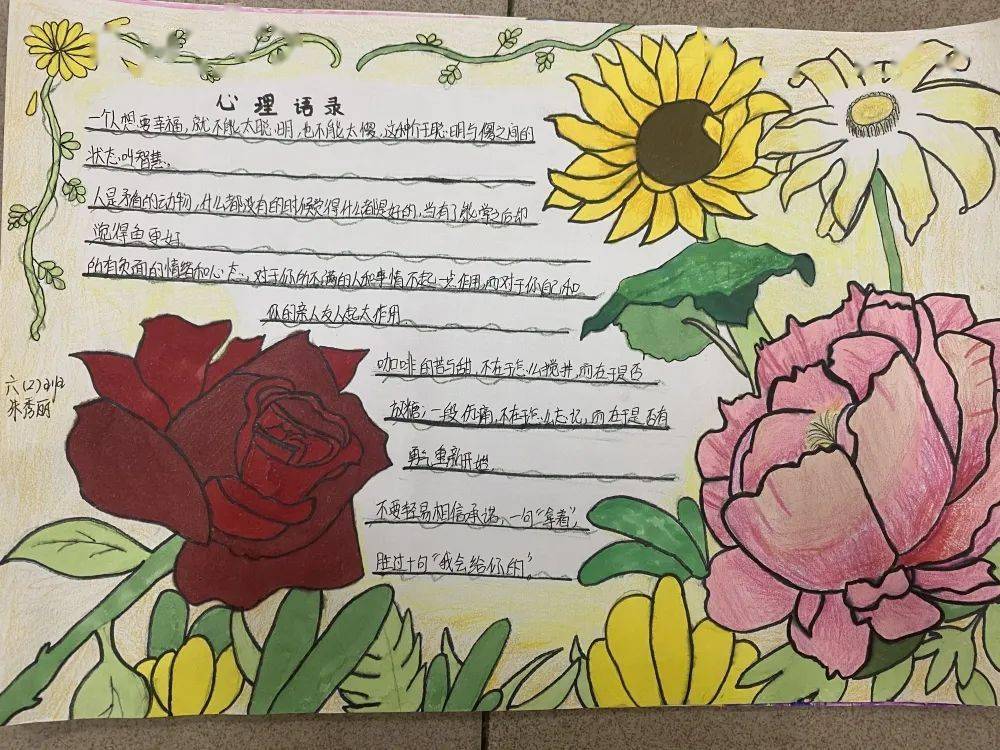 心理语录
一个人想要幸福,就不能太聪明,也不能太傻,这种介于聪明与傻之间的
状态叫智慧。
人是矛盾的动物,什么都没有的时候觉得什么都是好的,当有了 之后却
觉得 更好
所有负面的情绪和心态,对于你所不满的人和事情不起一点作用,而对于你自己和
你的亲人友人起大作用
咖啡的苦与甜,不在于怎么搅拌,而在于是否
放糖;一段伤痛,不在于怎么忘记,而在于是否有
勇气重新开始。
不要轻易相信承诺,一句“拿着”,
胜过十句“我会给你的”。
六(2)班
朱秀丽